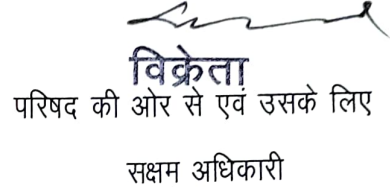 विक्रेता
परिषद की ओर से एवं उसके लिए
सक्षम अधिकारी